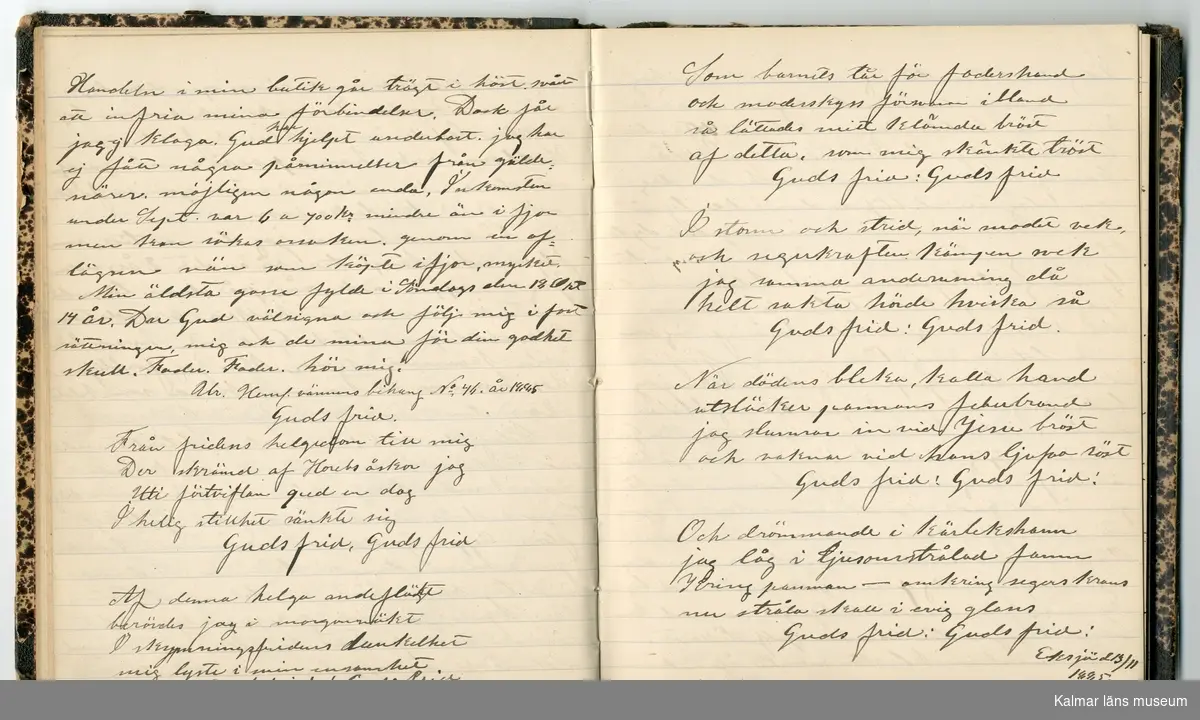 Handeln i min butik går trögt i höst. svårt
att infria mina förbindelser. Dock får
jag ej klaga. Gud har hjelpt underbart. jag har
ej fått några påminnelser från gälde-
närer. möjligen någon enda. Inkomsten
under Sept. var 6 a 700 kr mindre än i fjor
men kan sökas orsaken. genom en af-
lägsen vän som köpte i fjor, mycket.
Min äldsta gosse fylde i Söndags den 13
14 år. Der Gud välsigna och följ mig i fort
sättningen, mig och de mina för din godhet
skull. Fader. Fader. hör mig.
Hemf. vännens bihang No. 46. år 1895
Guds frid.
Från fridens helgedom till mig
Der skrämd af Horebs åskor jag
Uti förtviflan qved en dag
I helig stillhet sänkte sig
Guds frid, Guds frid
Af denna helga andeflägt
berördes jag i morgonväkt
I skymningsfridens dunkelhet
mig lyste i min ensamhet.
Guds frid
Som barnets tår för fadershand
och moderskyss försvinn ibland
så lättades mitt klämda bröst
af detta, som mig skänkte tröst
Guds frid: Guds frid
I storm och strid, när modet vek,
och segerkraften kämpen svek
jag samma andesusning då
helt sakta hörde hviska så
Guds frid: Guds frid.
När dödens bleka, kalla hand
utsläcker pannans feberbrand
jag slumrar in vid Jesu bröst
och vaknar vid hans ljufva röst
Guds frid: Guds frid:
Och drömmande i kärlekshamn
jag låg i ljusomstrålad famn
Kring pannan — omkring segerskrans
nu stråla skall i evig glans
Guds frid: Guds frid:
Eksjö d 13/11
1895
Kalmar läns museum